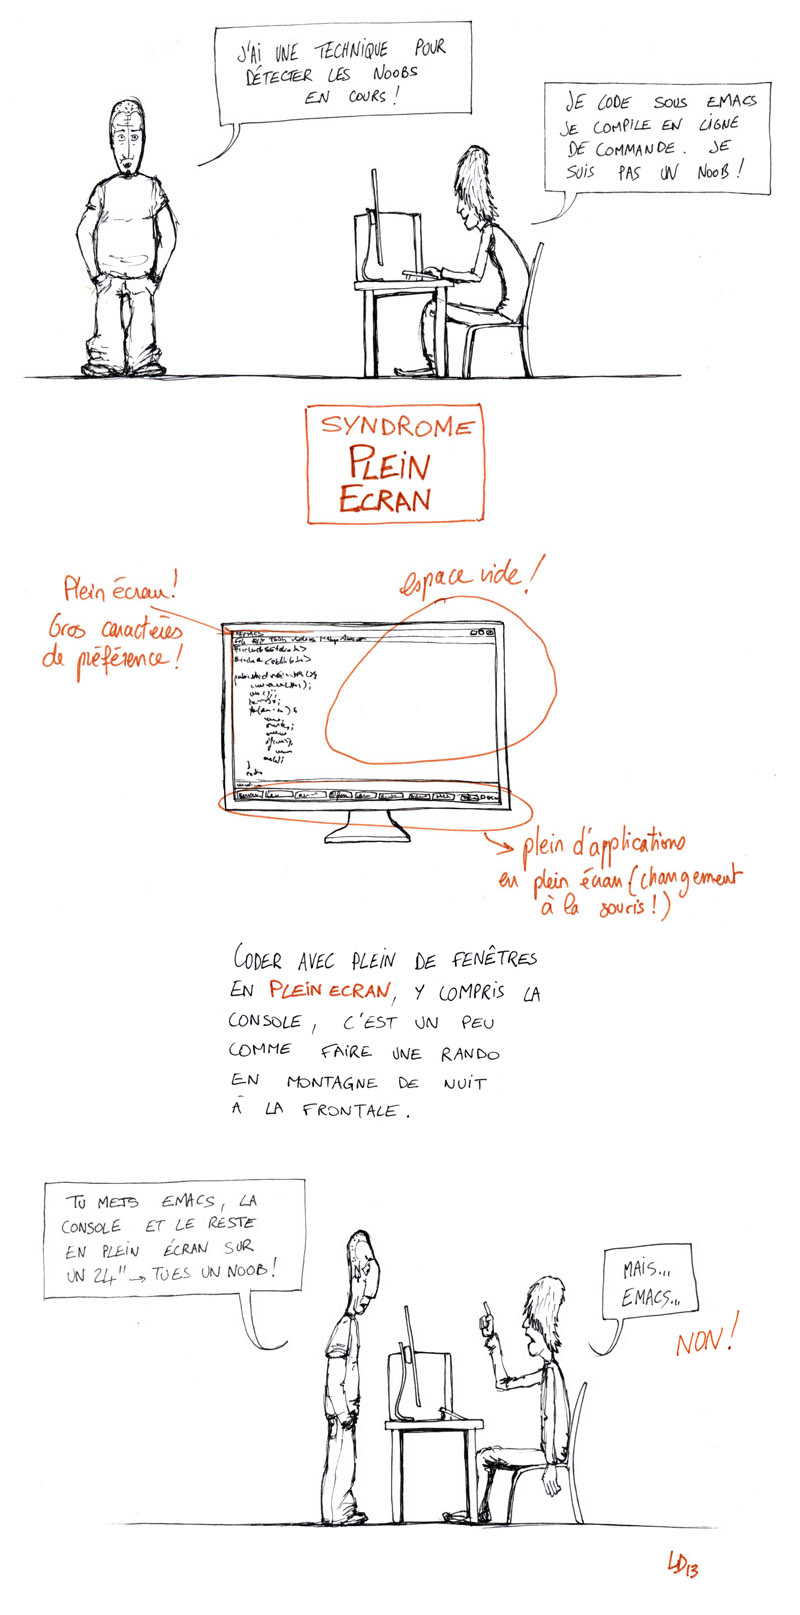 J'AI UNE TECHNIQUE POUR
DÉTECTER LES NOOBS
EN COURS !
JE CODE SOUS EMACS
JE COMPILE EN LIGNE
DE COMMANDE. JE
SUIS PAS UN NOOB !
SYNDROME
PLEIN
ECRAN
Plein écran !
Gros caractères
de préférence !
espace vide !
plein d'applications
en plein écran (changement
à la souris !)
CODER AVEC PLEIN DE FENÊTRES
EN PLEIN ECRAN, Y COMPRIS LA
CONSOLE, C'EST UN PEU
COMME FAIRE UNE RANDO
EN MONTAGNE DE NUIT
À LA FRONTALE.
TU METS EMACS, LA
CONSOLE ET LE RESTE
EN PLEIN ÉCRAN SUR
UN 24" → T'ES UN NOOB !
MAIS...
EMACS...
NON !
LD13